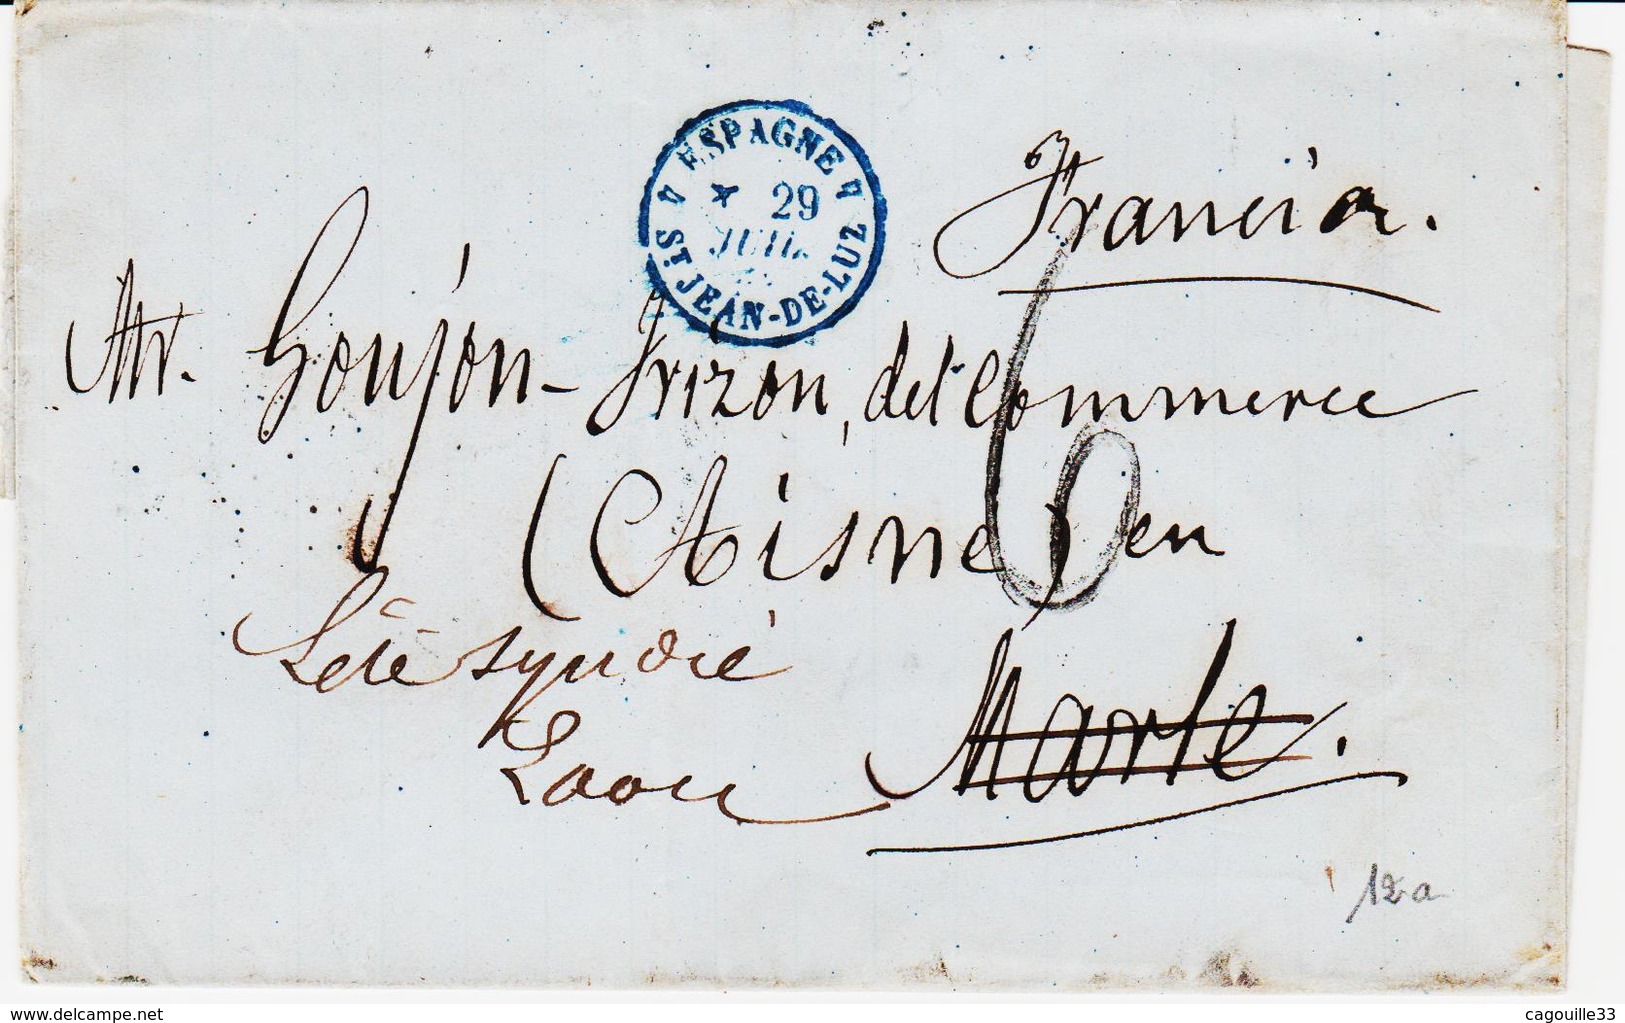 ESPAGNE
29
JUIL
ST JEAN-DE-LUZ
Francia.
Mr. Goujon-Frizon, del Commerce
6
(Aisne) en
Marle.
Laon
12a
www.delcampe.net
cagouille33